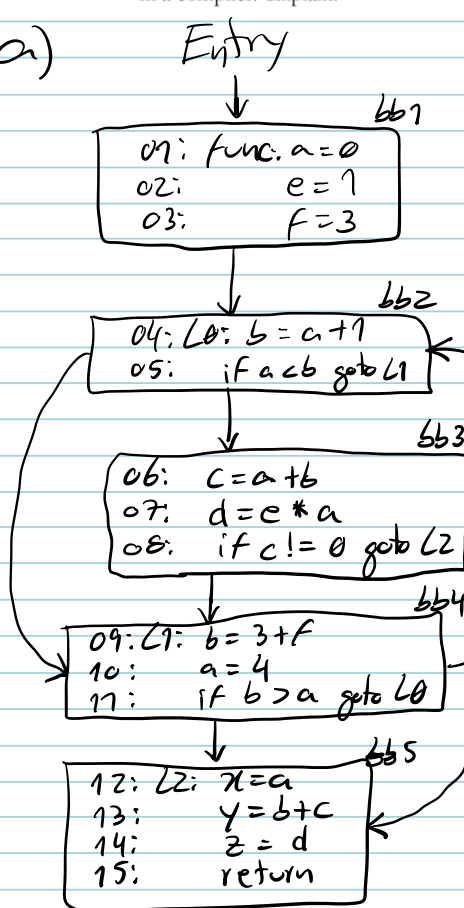 in a compiler. Explain.
a) Entry
bb1
01: func: a=0
02: e=1
03: f=3
bb2
04: L0: b=a+1
05: if a<b goto L1
bb3
06: c=a+b
07: d=e*a
08: if c!=0 goto L2
bb4
09: L1: b=3+f
10: a=4
11: if b>a goto L0
bb5
12: L2: x=a
13: y=b+c
14: z=d
15: return